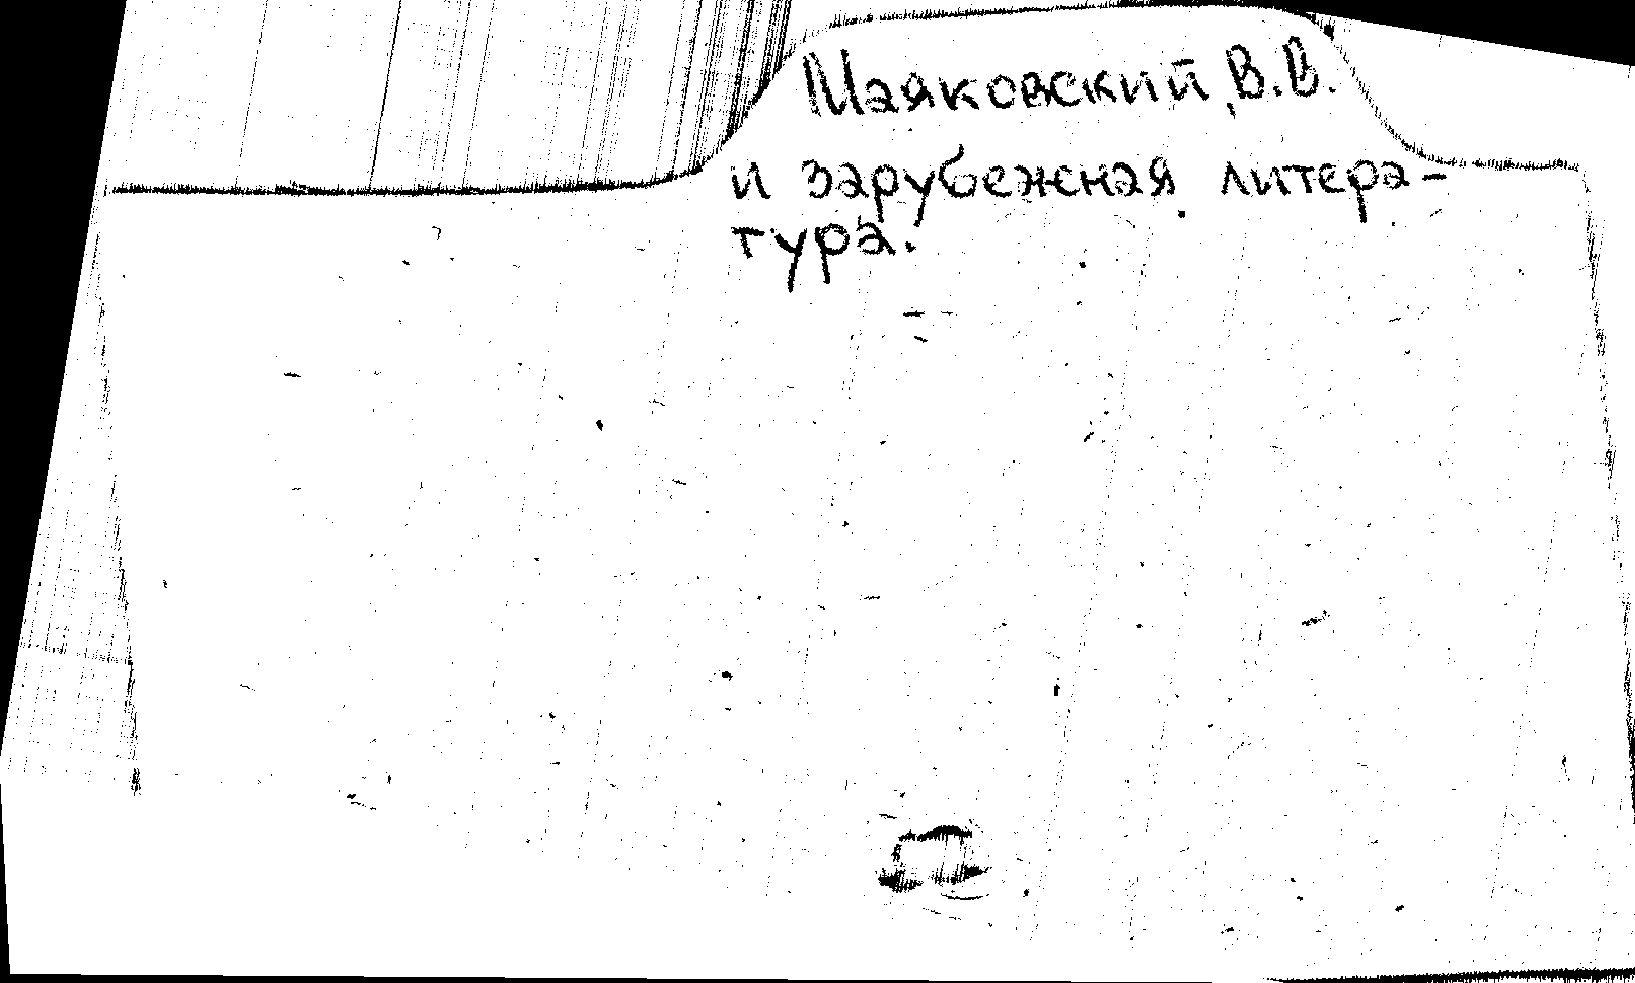 Маяковский, В.В.
и зарубежная литера-
тура.